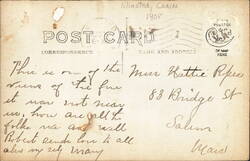 Winsted, Conn
1908
POST CARD
CORRESPONDENCE
NAME AND ADDRESS
This is one of the
views of the fire
it was not near
us, how are all the
folks we are well
Robert sends love to all
also my self Mary
Miss Hattie
83 Bridge St
Salem
Mass